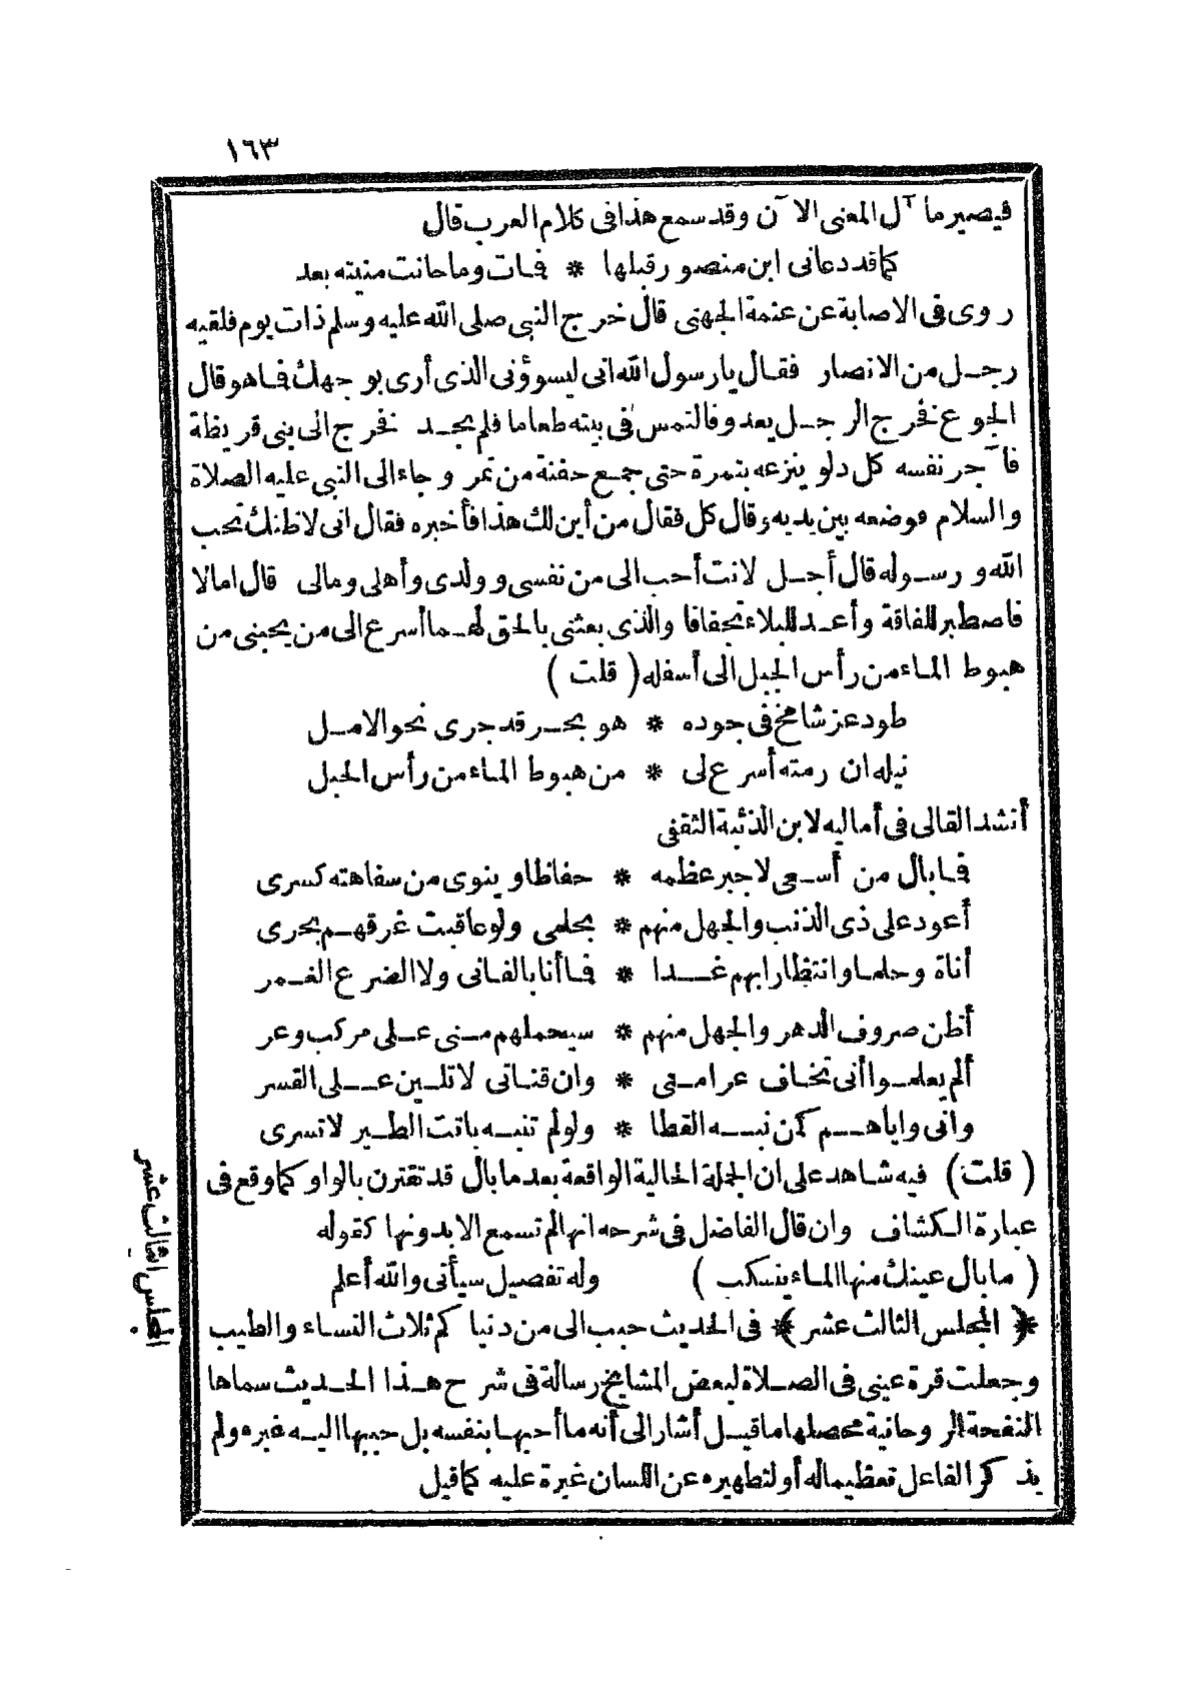 ١٦٣
فيصير مآل المعنى الآن وقد سمع هذا فى كلام العرب قال
كما قد دعانى ابن منصور قبلها * فمات وما حانت منيته بعد
روى فى الاصابة عن عتمة الجهنى قال خرج النبى صلى الله عليه وسلم ذات يوم فلقيه
رجل من الانصار فقال يا رسول الله انى ليسوؤنى الذى أرى بوجهك فما هو قال
الجوع فخرج الرجل يعدو فالتمس فى بيته طعاما فلم يجد فخرج الى بنى قريظة
فآجر نفسه كل دلو ينزعه بتمرة حتى جمع حفنة من تمر وجاء الى النبى عليه الصلاة
والسلام فوضعه بين يديه وقال كل فقال من أين لك هذا فأخبره فقال انى لاظنك تحب
الله ورسوله قال أجل لانت أحب الى من نفسى وولدى وأهلى ومالى قال امالا
فاصطبر للفاقة وأعد للبلاء تجفافا والذى بعثنى بالحق لهما أسرع الى من يحبنى من
هبوط الماء من رأس الجبل الى أسفله ( قلت )
طود عز شامخ فى جوده * هو بحر قد جرى نحو الامل
نيله ان رمته أسرع لى * من هبوط الماء من رأس الجبل
أنشد القالى فى أماليه لابن الذئبة الثقفى
فما بال من أسعى لاجبر عظمه * حفاظا وينوى من سفاهته كسرى
أعود على ذى الذنب والجهل منهم * بحلمى ولو عاقبت غرقهم بحرى
أناة وحلما وانتظارا بهم غدا * فما أنا بالفانى ولا الضرع الغمر
أظن صروف الدهر والجهل منهم * سيحملهم منى على مركب وعر
ألم يعلموا أنى تخاف عرامى * وان قناتى لا تلين على القسر
وانى واياهم كمن نبه القطا * ولو لم تنبه باتت الطير لا تسرى
( قلت ) فيه شاهد على ان الجملة الحالية الواقعة بعد ما بال قد تقترن بالواو كما وقع فى
عبارة الكشاف وان قال الفاضل فى شرحه انها لم تسمع الا بدونها كقوله
( ما بال عينك منها الماء ينسكب ) وله تفصيل سيأتى والله أعلم
* ( المجلس الثالث عشر ) * فى الحديث حبب الى من دنياكم ثلاث النساء والطيب
وجعلت قرة عينى فى الصلاة لبعض المشايخ رسالة فى شرح هذا الحديث سماها
النفحة الروحانية محصلها ما قيل أشار الى أنه ما أحبها بنفسه بل حببها اليه غيره ولم
يذكر الفاعل تعظيما له أو لتطهيره عن اللسان غيرة عليه كما قيل
المجلس الثالث عشر